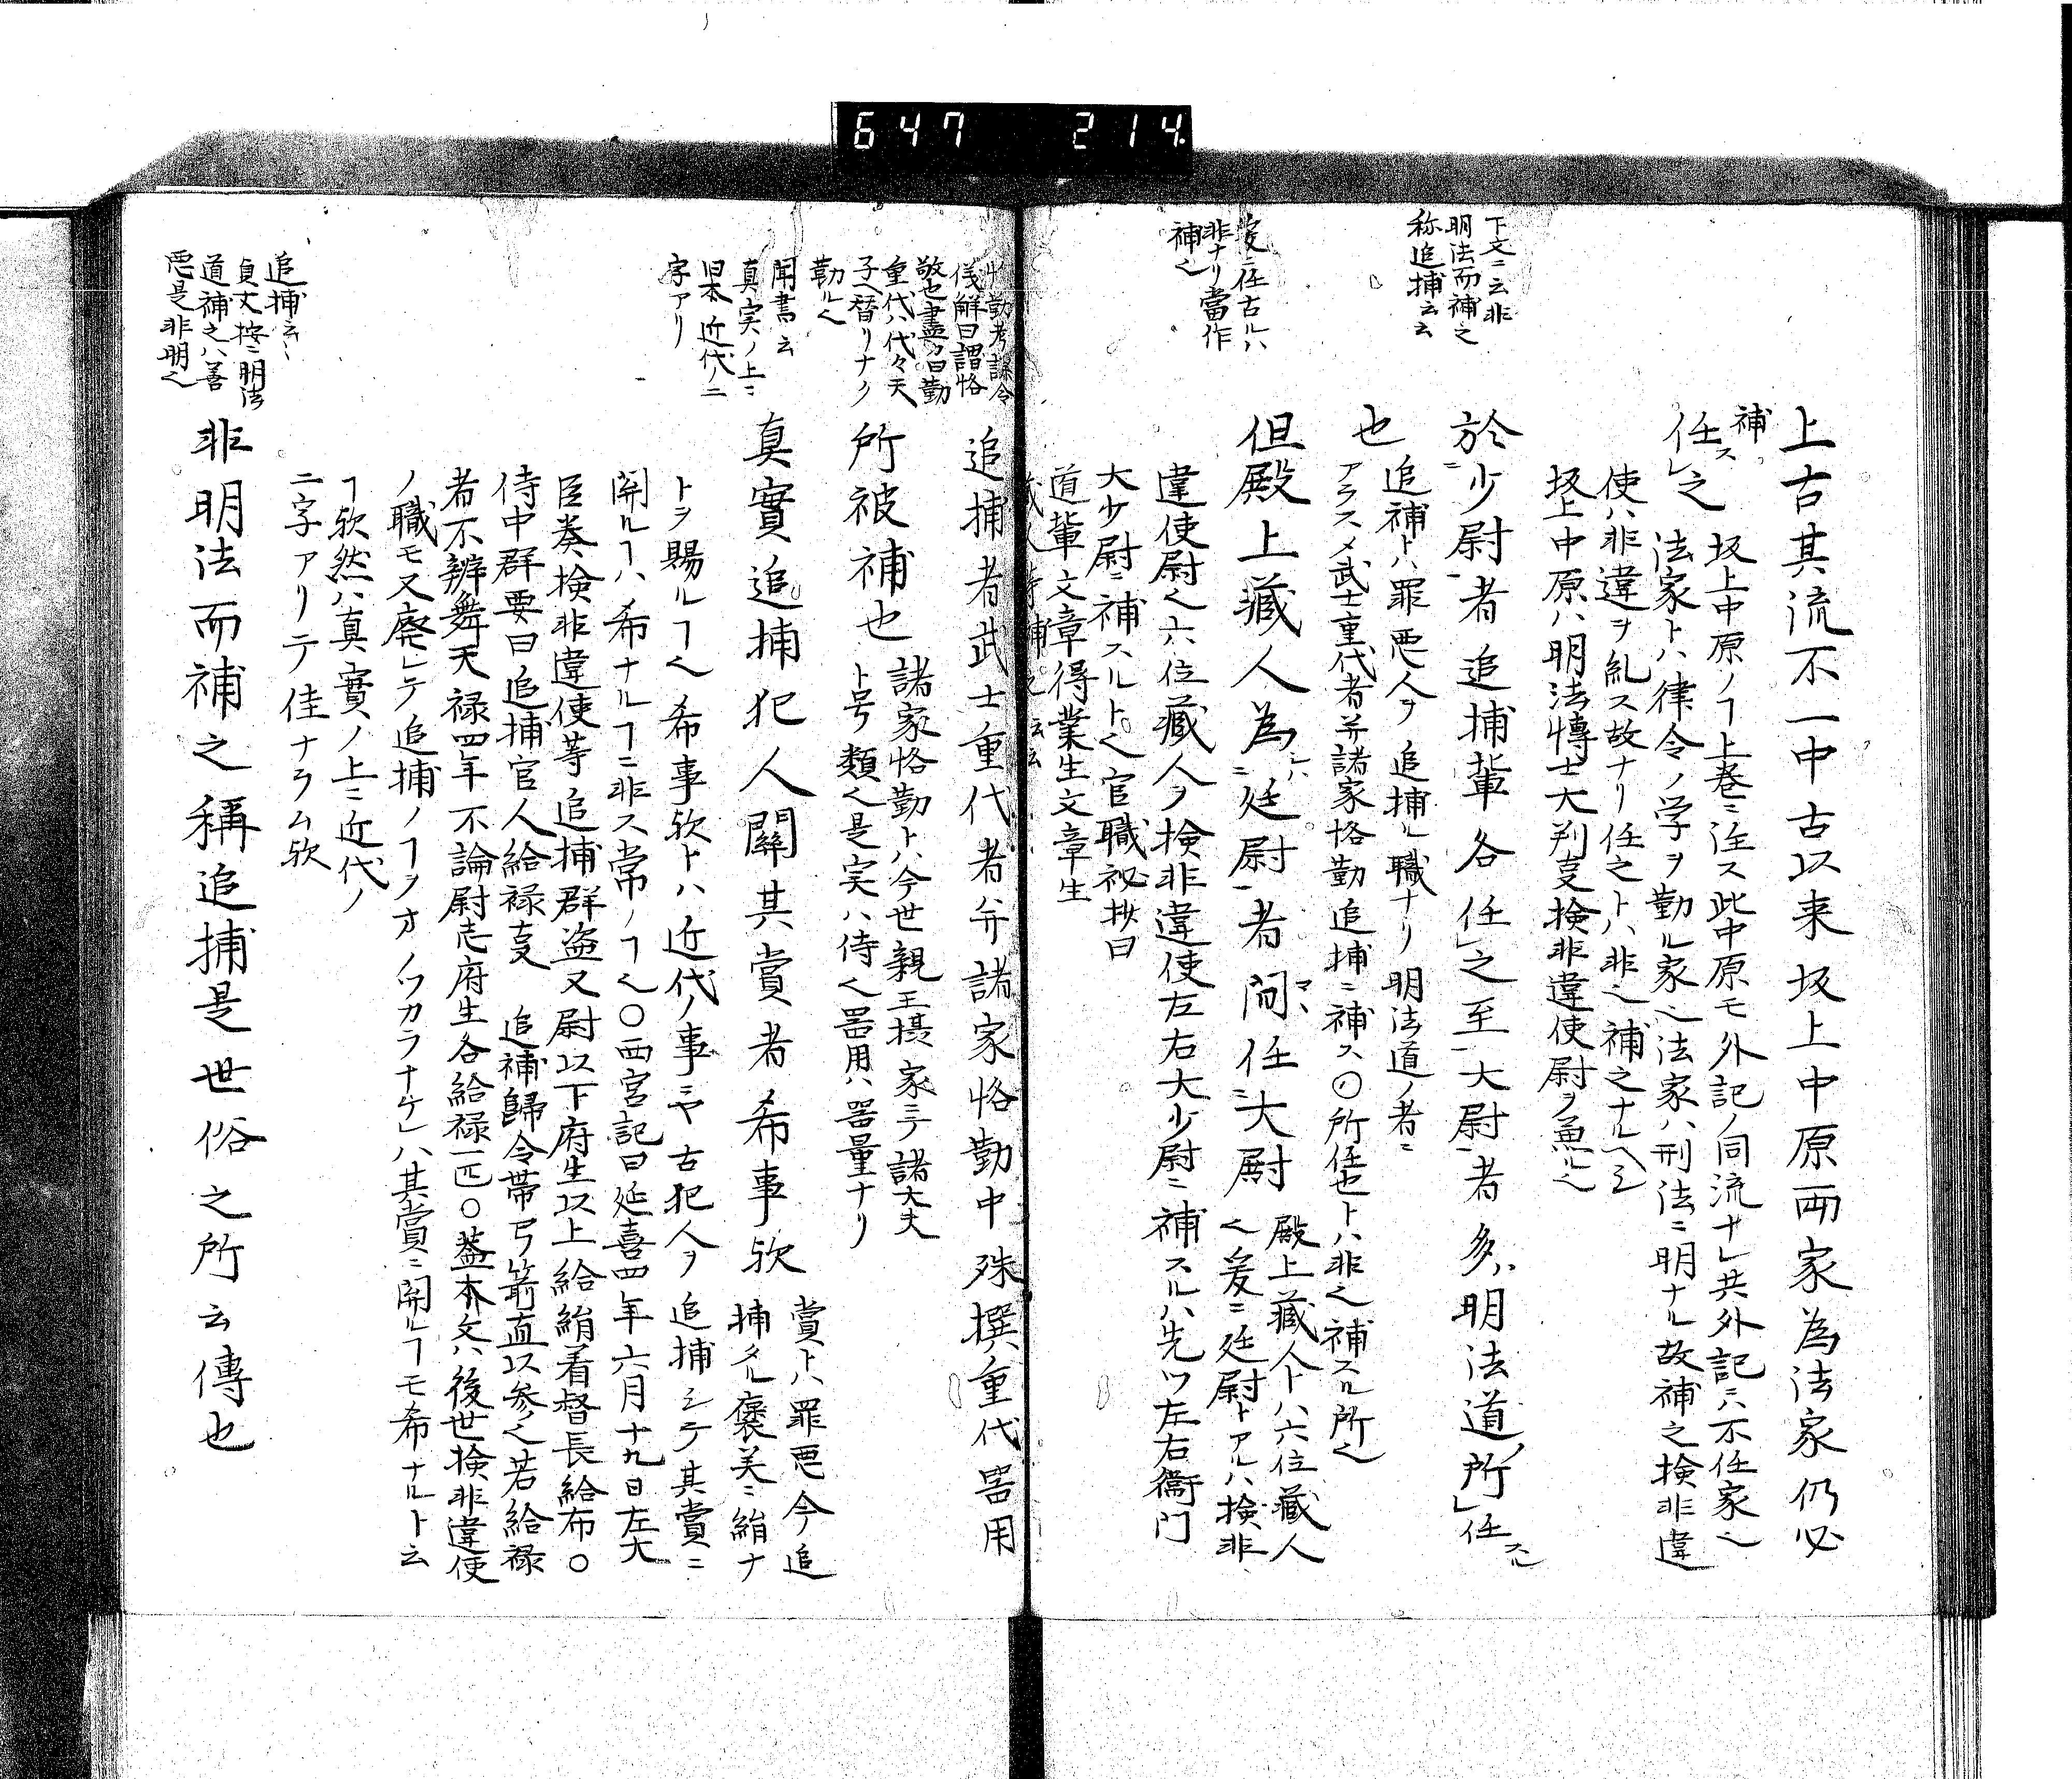 647 214
下文ニ云非
明法而補之
称追捕云云
上古其流不一中古以来坂上中原両家為法家仍必
補
任ス之
坂上中原ノヿ上巻ニ注ス此中原モ外記ノ同流ナレ共外記ニハ不任家也
法家トハ律令ノ学ヲ勤ル家也法家ハ刑法ニ明ナル故補之検非違
使ハ非違ヲ糺ス故ナリ任之トハ非也補之ナルヘシ
坂上中原ハ明法博士大判事検非違使尉ヲ兼ル也
於少尉者追捕輩各任之至大尉者多明法道ノ所任スル
也
追補トハ罪悪人ヲ追捕ル職ナリ明法道ノ者ニ
アラスメ武士重代者并諸家恪勤追捕ニ補ス〇所任也トハ非也補スル所也
非ナリ當作
補也
但殿上蔵人為廷尉者間任大尉
殿上蔵人トハ六位蔵人
也爰ニ廷尉トアルハ検非
違使尉也六位蔵人ヲ検非違使左右大少尉ニ補スルハ先ツ左右衛門
大少尉ニ補スルト也官職秘抄曰
道輩文章得業生文章生
恪勤考課令
儀解曰謂恪
敬也盡曰勤
重代ハ代々天
子ヘ替リナク
勤ル也
追捕者武士重代者并諸家恪勤中殊撰重代器用
所被補也
諸家恪勤トハ今世親王摂家ニテ諸大夫
ト号類也是実ハ侍也器用ハ器量ナリ
聞書云
真実ノ上ニ
旧本近代ノ二
字アリ
真實ノ追捕犯人關其賞者希事欤
賞トハ罪悪今追
捕タル褒美ニ絹ナ
トヲ賜ルヿ也希事欤トハ近代ノ事ミヤ古犯人ヲ追捕シテ其賞ニ
関ルヿハ希ナルヿニ非ス常ノヿ也〇西宮記曰延喜四年六月十九日左大
臣奏検非違使等追捕群盗又尉以下府生以上給絹看督長給布〇
侍中群要曰追捕官人給禄事 追補歸令帯弓箭直以参也若給禄
者不辨舞天禄四年不論尉志府生各給禄一匹〇蓋本文ハ後世検非違使
ノ職モ又廃レテ追捕ノヿヲオノツカラナケレハ其賞ニ関ルヿモ希ナルト云
ヿ欤然ハ真實ノ上ニ近代ノ
二字アリテ佳ナラム欤
追捕云々
貞丈按ニ明法
道補之ハ善
悪是非明也
非明法而補之稱追捕是世俗之所云傳也